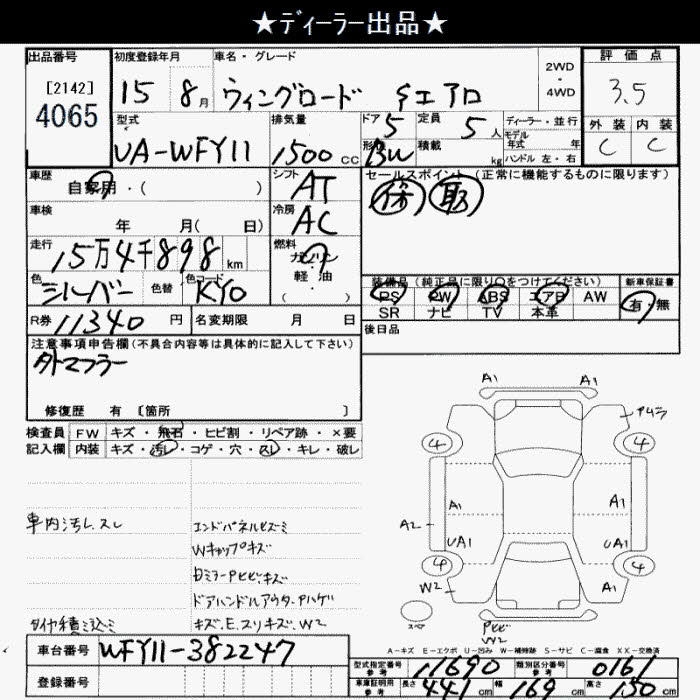 ★ディーラー出品★
出品番号
[2142]
4065
初度登録年月
15 8月
車名・グレード
ウィングロード
エアロ
2WD
・
4WD
評価点
3.5
外装 内装
C C
型式
UA-WFY11
排気量
1500 CC
ドア 5
定員 5人
形状 BW
積載 kg
ディーラー・並行
モデル年式 年
ハンドル 左・右
車歴
自家用・( )
シフト
AT
セールスポイント(正常に機能するものに限ります)
保 取
車検
年 月( 日)
冷房
AC
走行
15万4千898km
燃料
ガソリン
軽・油
( )
色
シルバー
色替
色コード
KY0
装備品(純正品に限り○をつけてください)
PS PW ABS エアB AW
SR ナビ TV 本革
新車保証書
有・無
R券 11340円
名変期限 月 日
後日品
注意事項申告欄(不具合内容等は具体的に記入して下さい)
外マフラー
修復歴 有 [箇所 ]
検査員記入欄
FW キズ・飛石・ヒビ割・リペア跡・×要
内装 キズ・汚レ・コゲ・穴・スレ・キレ・破レ
車内汚レ、スレ
タイヤ積ミ込ミ
エンドパネルヒズミ
Wキャップキズ
ドアハンドルアウターPハゲ
キズ、E、スリキズ、W2
A1 A1
4 4
A1 A1
A2
UA1 UA1
4 4
W2 A1
スペア
Pヒビ
W2
A-キズ E-エクボ U-凹み W-補修跡 S-サビ C-腐食 XX-交換済
車台番号
WFY11-382247
登録番号
型式指定番号 参考 11690
類別区分番号 参考 0161
車庫証明用 参考 長さ 441cm 幅 169cm 高さ 150cm